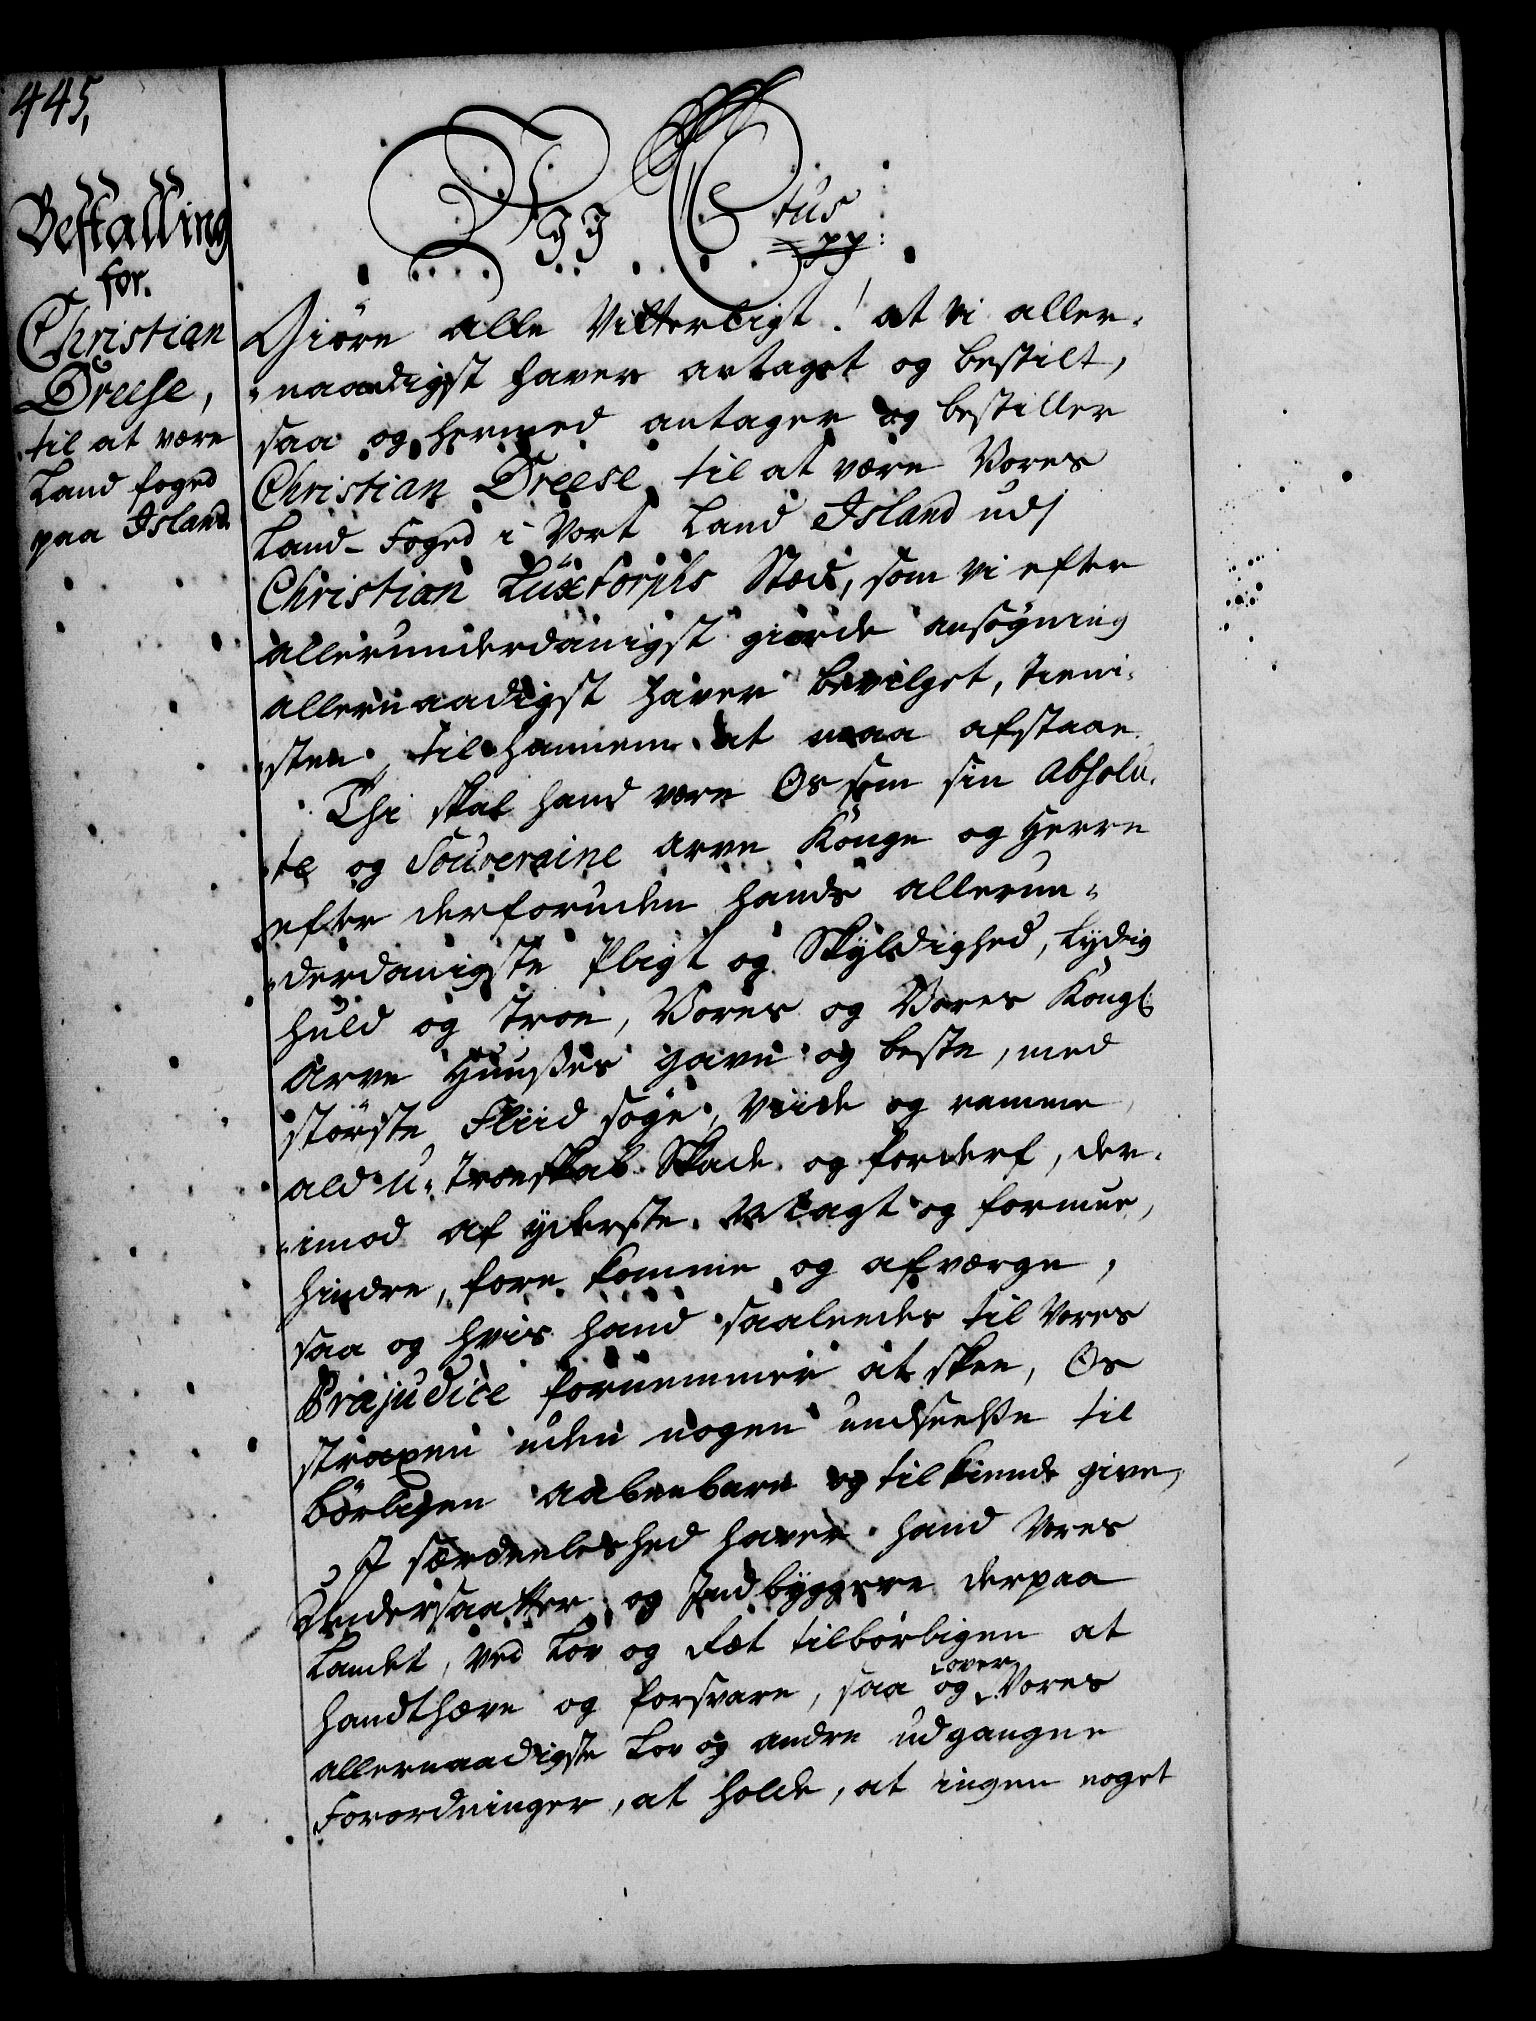 445,
Bestalling
for.
Christian
Dreese,
til at være
Land foged
paa Island
Vii Ctus
pp:
Giöre alle Vitterligt! at vi aller-
naadigst haver antaget og bestilt,
saa og hermed antager og bestiller
Christian Dreese, til at være Vores
Land-Foged i Vort Land Island udj
Christian Lüxtorphs Stæd, som vi efter
allerunderdanigst giorde ansøgning
allernaadigst haver bevilget, tieni-
sten til hannem at maa afstaae.
Thi skal hand være Os som sin Absolu-
te og Souveraine arve Konge og Herre
efter derforuden hands allerun-
derdanigste Pligt og Skyldighed, lydig
huld og troe, Vores og Vores Kongl:
Arve Huuses gavn og beste, med
störste Fliid søge, viide og ramme
ald u-troeskab Skade og forderf, der-
imod af yderste Magt og formue,
hindre, fore komme og afværge,
saa og hvis hand saaleedes til Vores
Præjudice fornemmer at skee, Os
straxen uden nogen undseelse til
børligen aabenbare og tilkiende give,
I særdeeleshed haver hand Vores
Undersaatter og Indbyggere derpaa
Landet, ved Lov og Ræt tilbørligen at
handthæve og forsvare, saa og over Vores
allernaadigste Lov og andre udgangne
Forordninger, at holde, at ingen noget